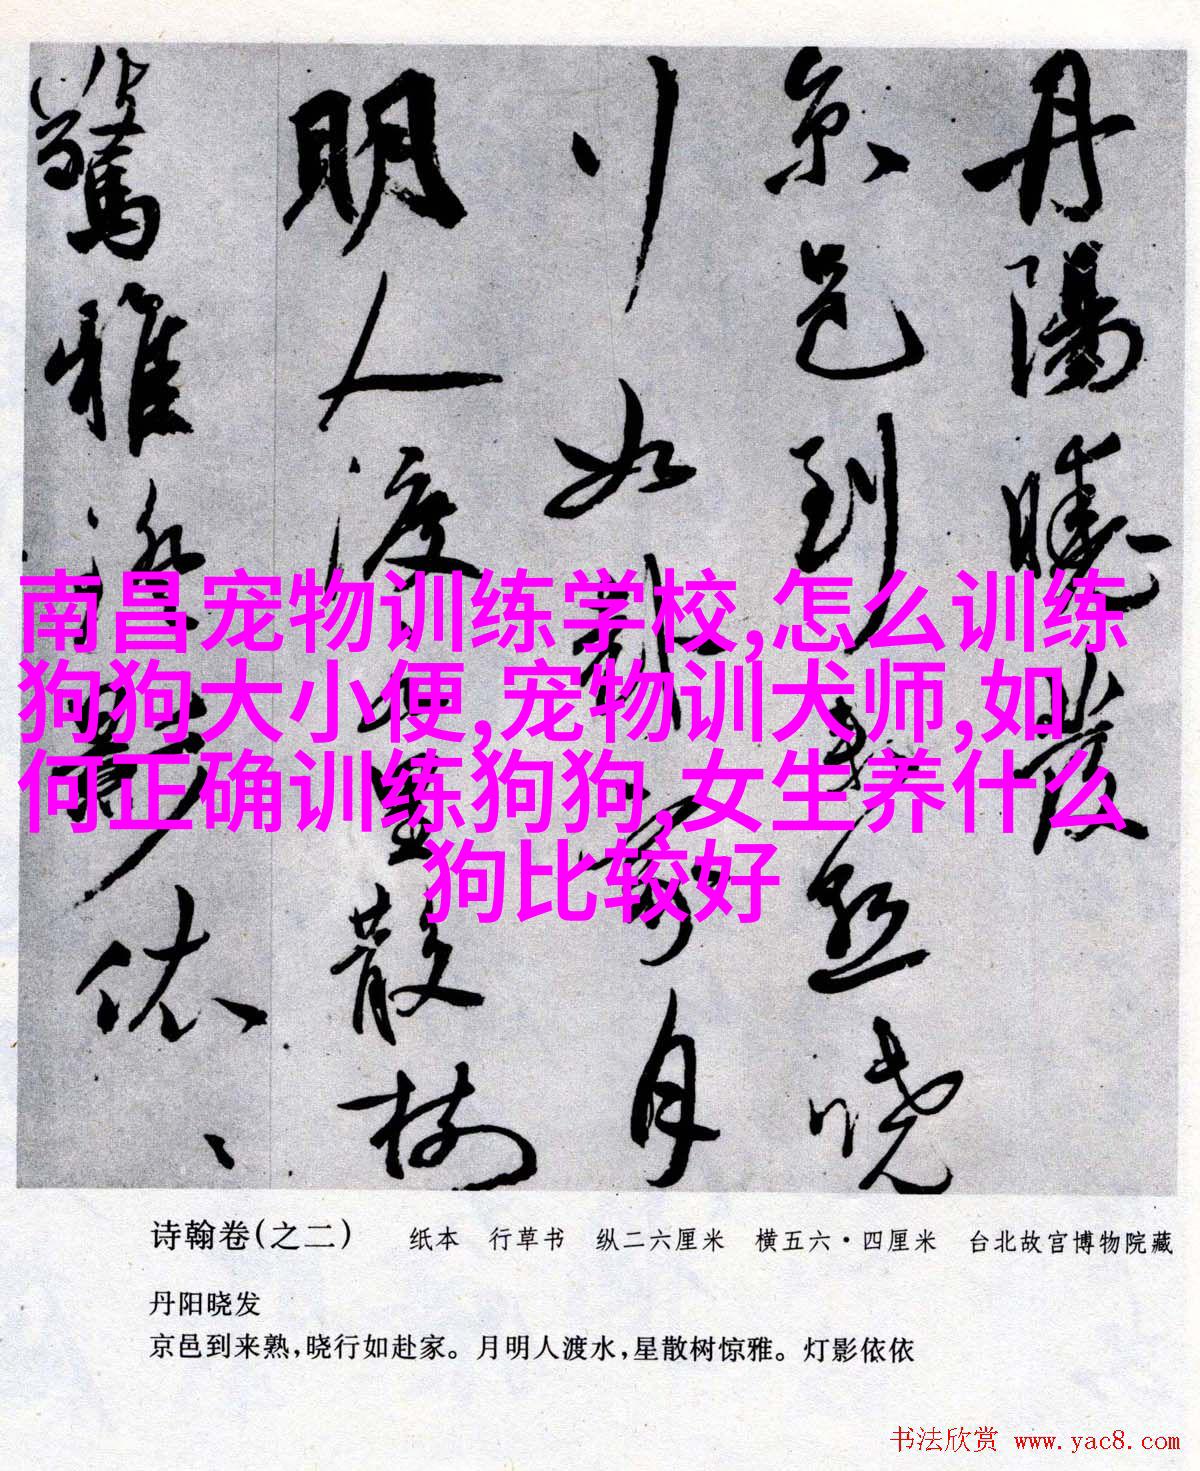 丹陽曉發
京邑到來熟曉
行如赴家月
明人渡水星散樹
驚雅燈影依、
南昌宠物训练学校,怎么训练
狗狗大小便,宠物训犬师,如
何正确训练狗狗,女生养什么
狗比较好
诗翰卷(之二) 纸本 行草书 纵二六厘米 横五六·四厘米 台北故宫博物院藏
丹阳晓发
京邑到来熟,晓行如赴家。月明人渡水,星散树惊雅。灯影依依
书法欣赏 www.yac8.com